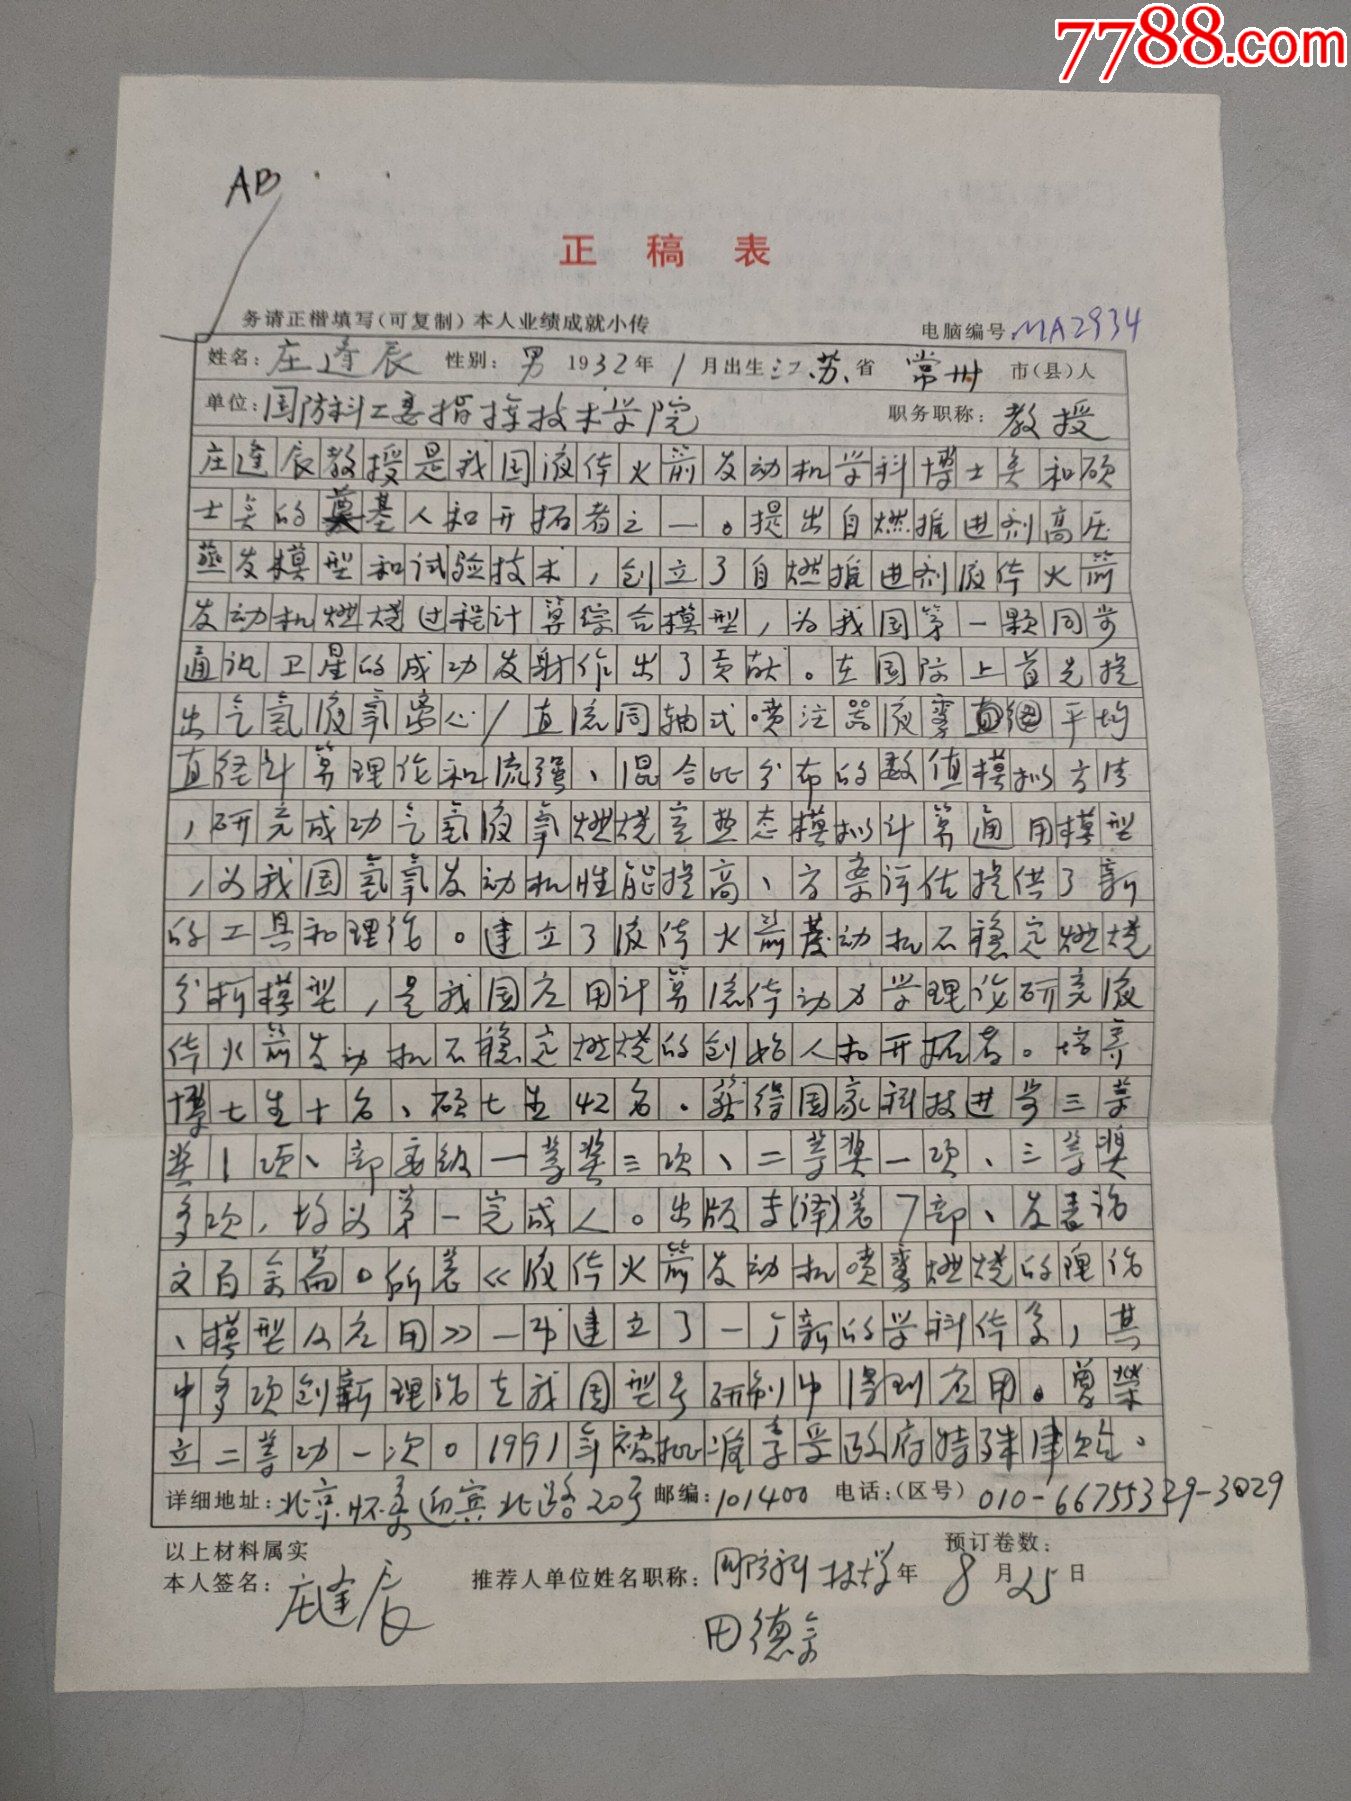 7788.com
AB
正稿表
务请正楷填写(可复制)本人业绩成就小传
电脑编号 MA2934
姓名:庄逢辰 性别:男 1932年1月出生 江苏省 常州 市(县)人
单位:国防科工委指挥技术学院 职务职称:教授
庄逢辰教授是我国液体火箭发动机学科博士点和硕
士点的奠基人和开拓者之一。提出自燃推进剂高压
蒸发模型和试验技术,创立了自燃推进剂液体火箭
发动机燃烧过程计算综合模型,为我国第一颗同步
通讯卫星的成功发射作出了贡献。在国际上首先提
出气氢液氧离心/直流同轴式喷注器液雾平均
直径计算理论和流强、混合比分布的数值模拟方法
,研究成功气氢液氧燃烧室热态模拟计算通用模型
,为我国氢氧发动机性能提高、方案评估提供了新
的工具和理论。建立了液体火箭发动机不稳定燃烧
分析模型,是我国应用计算流体动力学理论研究液
体火箭发动机不稳定燃烧的创始人和开拓者。培养
博士生十名、硕士生42名。获得国家科技进步三等
奖1项、部委级一等奖三项、二等奖一项、三等奖
多项,均为第一完成人。出版专(译)著7部、发表论
文百余篇。所著《液体火箭发动机喷雾燃烧的理论
、模型及应用》一书建立了一个新的学科体系,其
中多项创新理论在我国型号研制中得到应用。曾荣
立二等功一次。1991年被批准享受政府特殊津贴。
详细地址:北京怀柔迎宾北路20号 邮编:101400 电话:(区号)010-66755329-3029
以上材料属实 预订卷数:
本人签名:庄逢辰 推荐人单位姓名职称:国防科技大学 年8月25日
田德